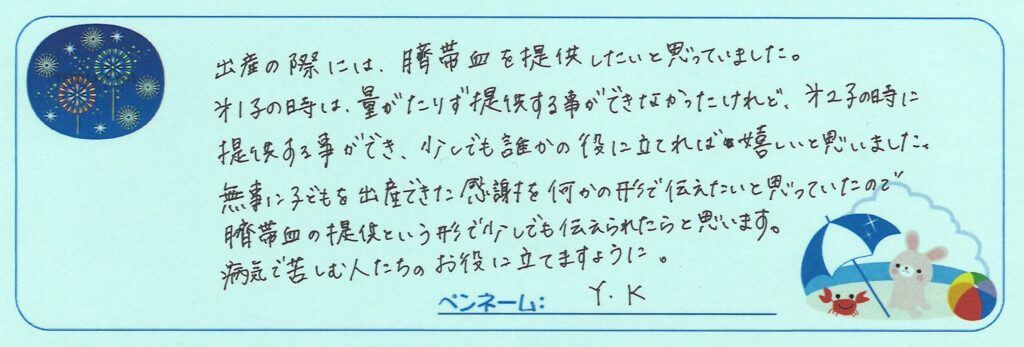 出産の際には、臍帯血を提供したいと思っていました。
才1子の時は、量がたりず提供する事ができなかったけれど、才2子の時に
提供する事ができ、少しでも誰かの役に立てれば嬉しいと思いました。
無事に子どもを出産できた感謝を何かの形で伝えたいと思っていたので
臍帯血の提供という形で少しでも伝えられたらと思います。
病気で苦しむ人たちのお役に立てますように。
ペンネーム: Y.K